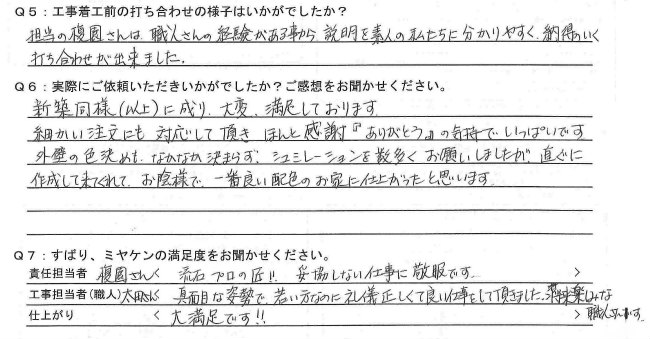 Q5：工事着工前の打ち合わせの様子はいかがでしたか？
担当の榎園さんは、職人さんの経験がある事から、説明を素人の私たちに分かりやすく、納得のいく
打ち合わせが出来ました。
Q6：実際にご依頼いただきいかがでしたか？ご感想をお聞かせください。
新築同様（以上）に成り、大変、満足しております
細かい注文にも対応して頂き ほんと感謝『ありがとう』の気持でいっぱいです
外壁の色決めも、なかなか決まらず、シュミレーションを数多くお願いしましたが直ぐに
作成して来てくれて、お陰様で、一番良い配色のお家に仕上がったと思います
Q7：すばり、ミヤケンの満足度をお聞かせください。
責任担当者 榎園さん＜ 流石プロの匠!! 妥協しない仕事に敬服です。 ＞
工事担当者(職人) 太田さん＜ 真面目な姿勢で、若い方なのに礼儀正しくて良い仕事をして頂きました。将来楽しみな
仕上がり ＜ 大満足です!! ＞ 職人さんです。